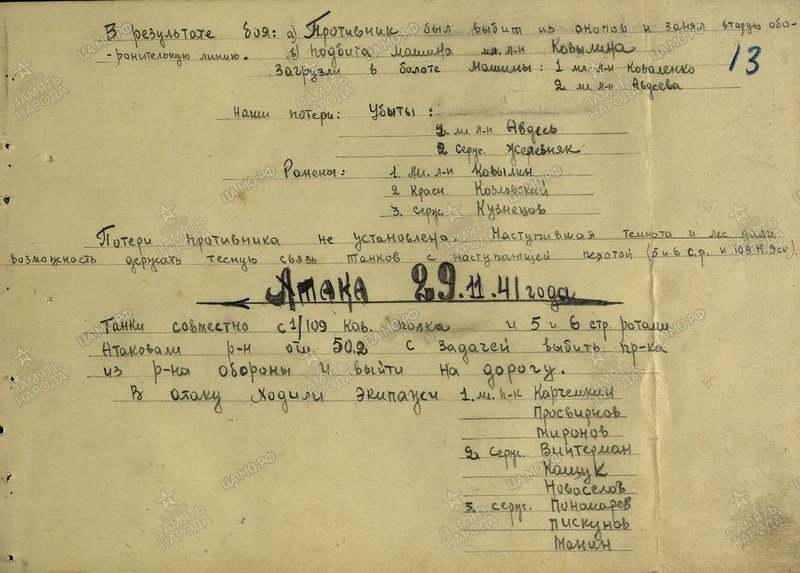 В результате боя: а) Противник был выбит из окопов и занял вторую обо-
-ронительную линию. в) подбита машина мл. л-н Ковылина
Загрузли в болоте машины: 1 мл. л-н Коваленко
2 мл. л-н Авдеева
13
Наши потери: Убиты:
1. мл л-н Авдеев
2 серж. Жеревняк
Ранены: 1. Мл. л-н Ковылин
2 Красн. Козловский
3. серж. Кузнецов
Потери противника не установлено. Наступившая темнота и лес дали
возможность держать тесную связь танков с наступающей пехотой (5 и 6 с.р. и 109 К.Эск).
Атака 29.11.41 года
Танки совместно с 1/109 кав. полка и 5 и 6 стр. ротами
Атаковали р-н отм. 50.2 с задачей выбить пр-ка
из р-на обороны и выйти на дорогу.
В атаку ходили экипажи 1. мл. л-к Карчемкин
Просвирнов
Миронов
2 серж. Винтерман
Кащук
Новоселов
3. серж. Пономарев
Пискунов
Манин
ПАМЯТЬ НАРОДА
ЦАМО.РФ